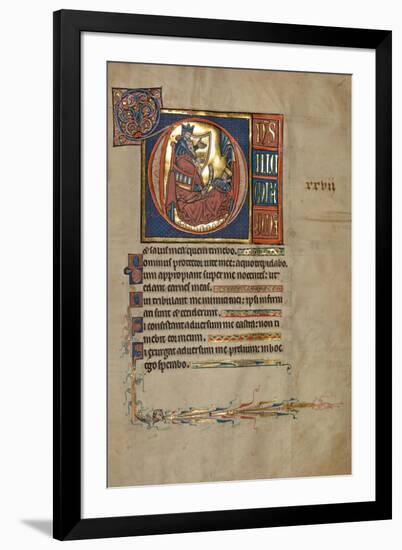 xxvii
& salus mea quem timebo.
Dominus protector vite mee: a quo trepidabo.
Dum appropiant super me nocentes: ut
edant carnes meas.
Qui tribulant me inimici mei: ipsi infirm
ati sunt & ceciderunt.
Si consistant adversum me castra: non ti
mebit cor meum.
Si exurgat adversum me prelium: in hoc
ego sperabo.